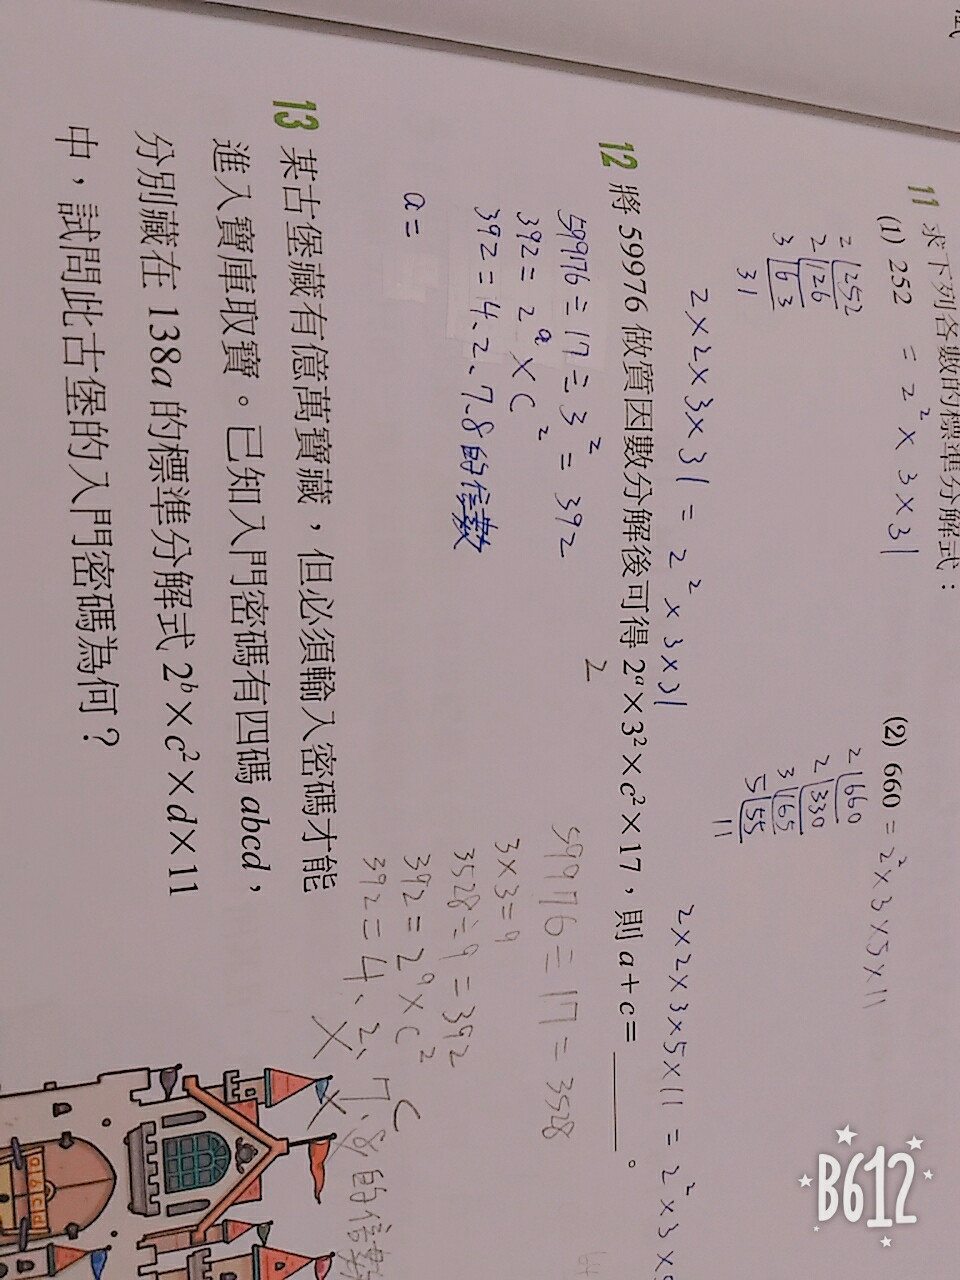 11 求下列各數的標準分解式：
(1) 252 = 2² × 3 × 31
2 252
2 126
3 63
31
2×2×3×31 = 2² × 3×31
(2) 660 = 2²×3×5×11
2 660
2 330
3 165
5 55
11
2×2×3×5×11 = 2²×3×5
12 將 59976 做質因數分解後可得 2ᵃ×3²×c²×17，則 a+c= 。
2
59976÷17÷3² = 392
392 = 2ᵃ × C²
392 = 4、2、7、8的倍數
a =
59976÷17 = 3528
3×3=9
3528÷9=392
392=2ᵃ×C²
392=4、2、7、8的倍數
C
13 某古堡藏有億萬寶藏，但必須輸入密碼才能
進入寶庫取寶。已知入門密碼有四碼 abcd，
分別藏在 138a 的標準分解式 2ᵇ×c²×d×11
中，試問此古堡的入門密碼為何？
B612